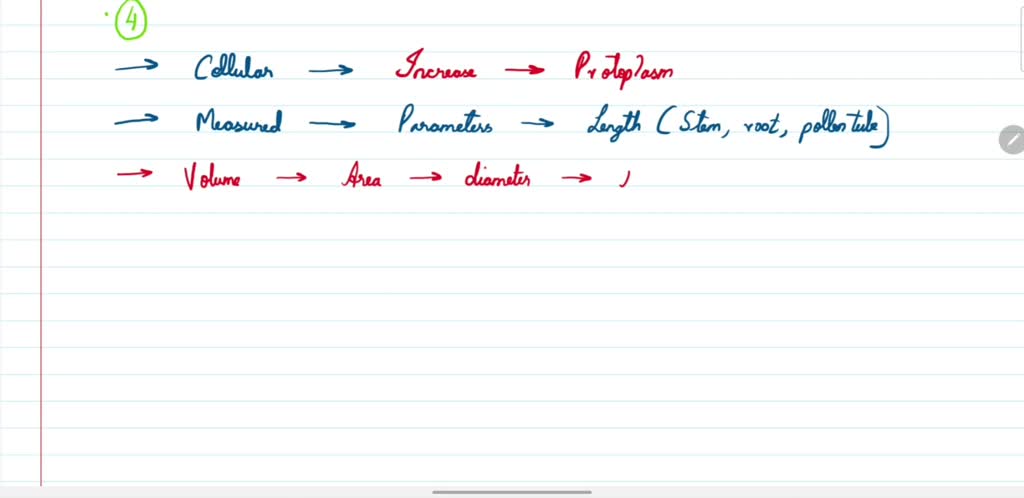 4
→ Cellular → Increase → Protoplasm
→ Measured → Parameters → Length (Stem, root, pollen tube)
→ Volume → Area → diameter →